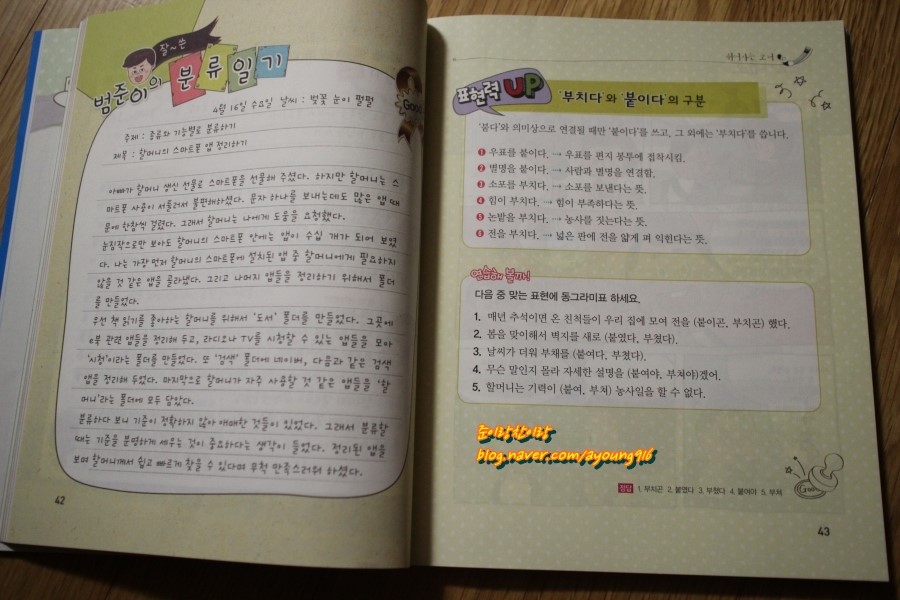 잘~쓴
범준이의 분류일기
Good
4월 16일 수요일 날씨 : 벚꽃 눈이 펄펄
주제 : 종류와 기능별로 분류하기
제목 : 할머니의 스마트폰 앱 정리하기
아빠가 할머니 생신 선물로 스마트폰을 선물해 주셨다. 하지만 할머니는 스
마트폰 사용이 서툴러서 불편해하셨다. 문자 하나를 보내는데도 많은 앱 때
문에 한참씩 걸렸다. 그래서 할머니는 나에게 도움을 요청했다.
눈짐작으로만 보아도 할머니의 스마트폰 안에는 앱이 수십 개가 되어 보였
다. 나는 가장 먼저 할머니의 스마트폰에 설치된 앱 중 할머니에게 필요하지
않을 것 같은 앱을 골라냈다. 그리고 나머지 앱들을 정리하기 위해서 폴더
를 만들었다.
우선 책 읽기를 좋아하는 할머니를 위해서 '도서' 폴더를 만들었다. 그곳에
e북 관련 앱들을 정리해 두고, 라디오나 TV를 시청할 수 있는 앱들을 모아
'시청'이라는 폴더를 만들었다. 또 '검색' 폴더에 네이버, 다음과 같은 검색
앱을 정리해 두었다. 마지막으로 할머니가 자주 사용할 것 같은 앱들을 '할
머니'라는 폴더에 모두 담았다.
분류하다 보니 기준이 정확하지 않아 애매한 것들이 있었다. 그래서 분류할
때는 기준을 분명하게 세우는 것이 중요하다는 생각이 들었다. 정리된 앱을
보며 할머니께서 쉽고 빠르게 찾을 수 있다며 무척 만족스러워 하셨다.
42
표현력 UP '부치다'와 '붙이다'의 구분
'붙다'와 의미상으로 연결될 때만 '붙이다'를 쓰고, 그 외에는 '부치다'를 씁니다.
1 우표를 붙이다. → 우표를 편지 봉투에 접착시킴.
2 별명을 붙이다. → 사람과 별명을 연결함.
3 소포를 부치다. → 소포를 보낸다는 뜻.
4 힘이 부치다. → 힘이 부족하다는 뜻.
5 논밭을 부치다. → 농사를 짓는다는 뜻.
6 전을 부치다. → 넓은 판에 전을 얇게 펴 익힌다는 뜻.
연습해 볼까!
다음 중 맞는 표현에 동그라미표 하세요.
1. 매년 추석이면 온 친척들이 우리 집에 모여 전을 (붙이곤, 부치곤) 했다.
2. 봄을 맞이해서 벽지를 새로 (붙였다, 부쳤다).
3. 날씨가 더워 부채를 (붙여다, 부쳤다).
4. 무슨 말인지 몰라 자세한 설명을 (붙여야, 부쳐야)겠어.
5. 할머니는 기력이 (붙여, 부쳐) 농사일을 할 수 없다.
준이랑찬이랑
blog.naver.com/ayoung916
정답 1. 부치곤 2. 붙였다 3. 부쳤다 4. 붙여야 5. 부쳐
43